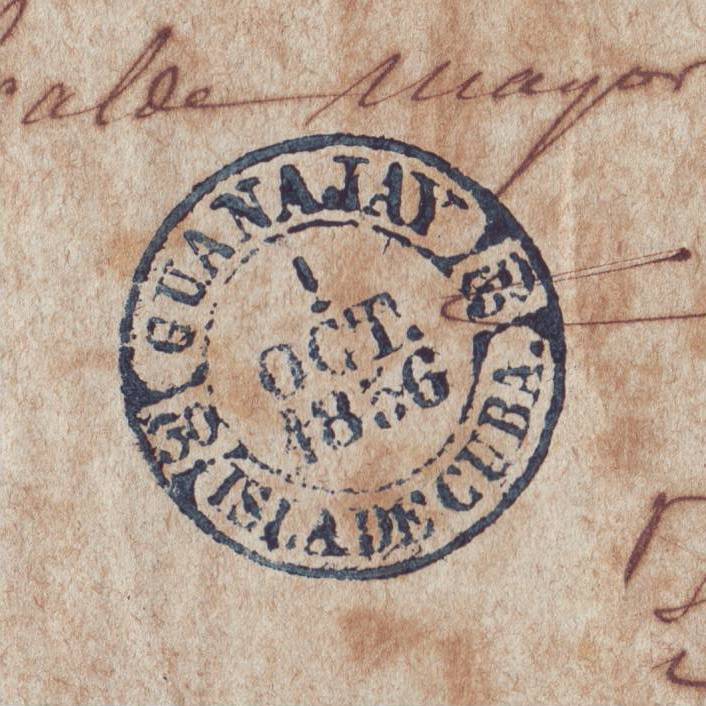 calde mayor
GUANAJAY
1
OCT.
1856
ISLA DE CUBA.